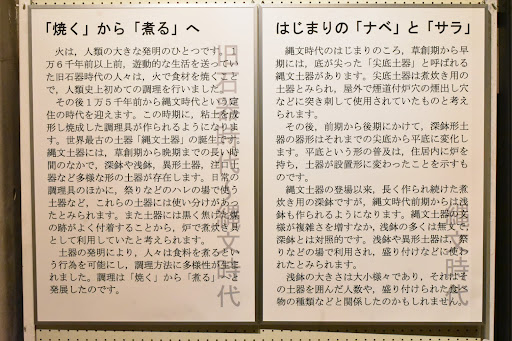 「焼く」から「煮る」へ
火は、人類の大きな発明のひとつです。1
万6千年前以上前、遊動的な生活を送ってい
た旧石器時代の人々は、火で食材を焼くこと
で、人類史上初めての調理を行いました。
その後1万5千年前から縄文時代という定
住の時代を迎えます。この時期に、粘土を成
形し焼成した調理具が作られるようになりま
す。世界最古の土器「縄文土器」の誕生です。
縄文土器には、草創期から晩期までの長い時
間のなかで、深鉢や浅鉢、異形土器、注口土
器など多様な形の土器が存在します。日常の
調理具のほかに、祭りなどのハレの場で使う
土器など、これらの土器には使い分けがあっ
たとみられます。また土器には黒く焦げた煤
の跡がよく付着することから、炉で煮炊き具
として利用していたと考えられます。
土器の発明により、人々は食料を煮るとい
う行為を可能にし、調理方法に多様性が生ま
れました。調理は「焼く」から「煮る」へ
発展したのです。
旧石器時代〜縄文時代
はじまりの「ナベ」と「サラ」
縄文時代のはじまりのころ、草創期から早
期には、底が尖った「尖底土器」と呼ばれる
縄文土器があります。尖底土器は煮炊き用の
土器とみられ、屋外で煙道付炉穴の煙出し穴
などに突き刺して使用されていたものと考え
られます。
その後、前期から後期にかけて、深鉢形土
器の器形はそれまでの尖底から平底に変化し
ます。平底という形の普及は、住居内に炉を
持ち、土器が設置形に変わったことを示すも
のです。
縄文土器の登場以来、長く作られ続けた煮
炊き用の深鉢ですが、縄文時代前期からは浅
鉢も作られるようになります。縄文土器の文
様が複雑さを増すなか、浅鉢の多くは無文で、
深鉢とは対照的です。浅鉢や異形土器は、祭
りなどの場で利用され、盛り付けなどに使わ
れたとみられます。
浅鉢の大きさは大小様々であり、それはそ
の土器を囲んだ人数や、盛り付けられた食べ
物の種類などと関係したのかもしれません。
縄文時代